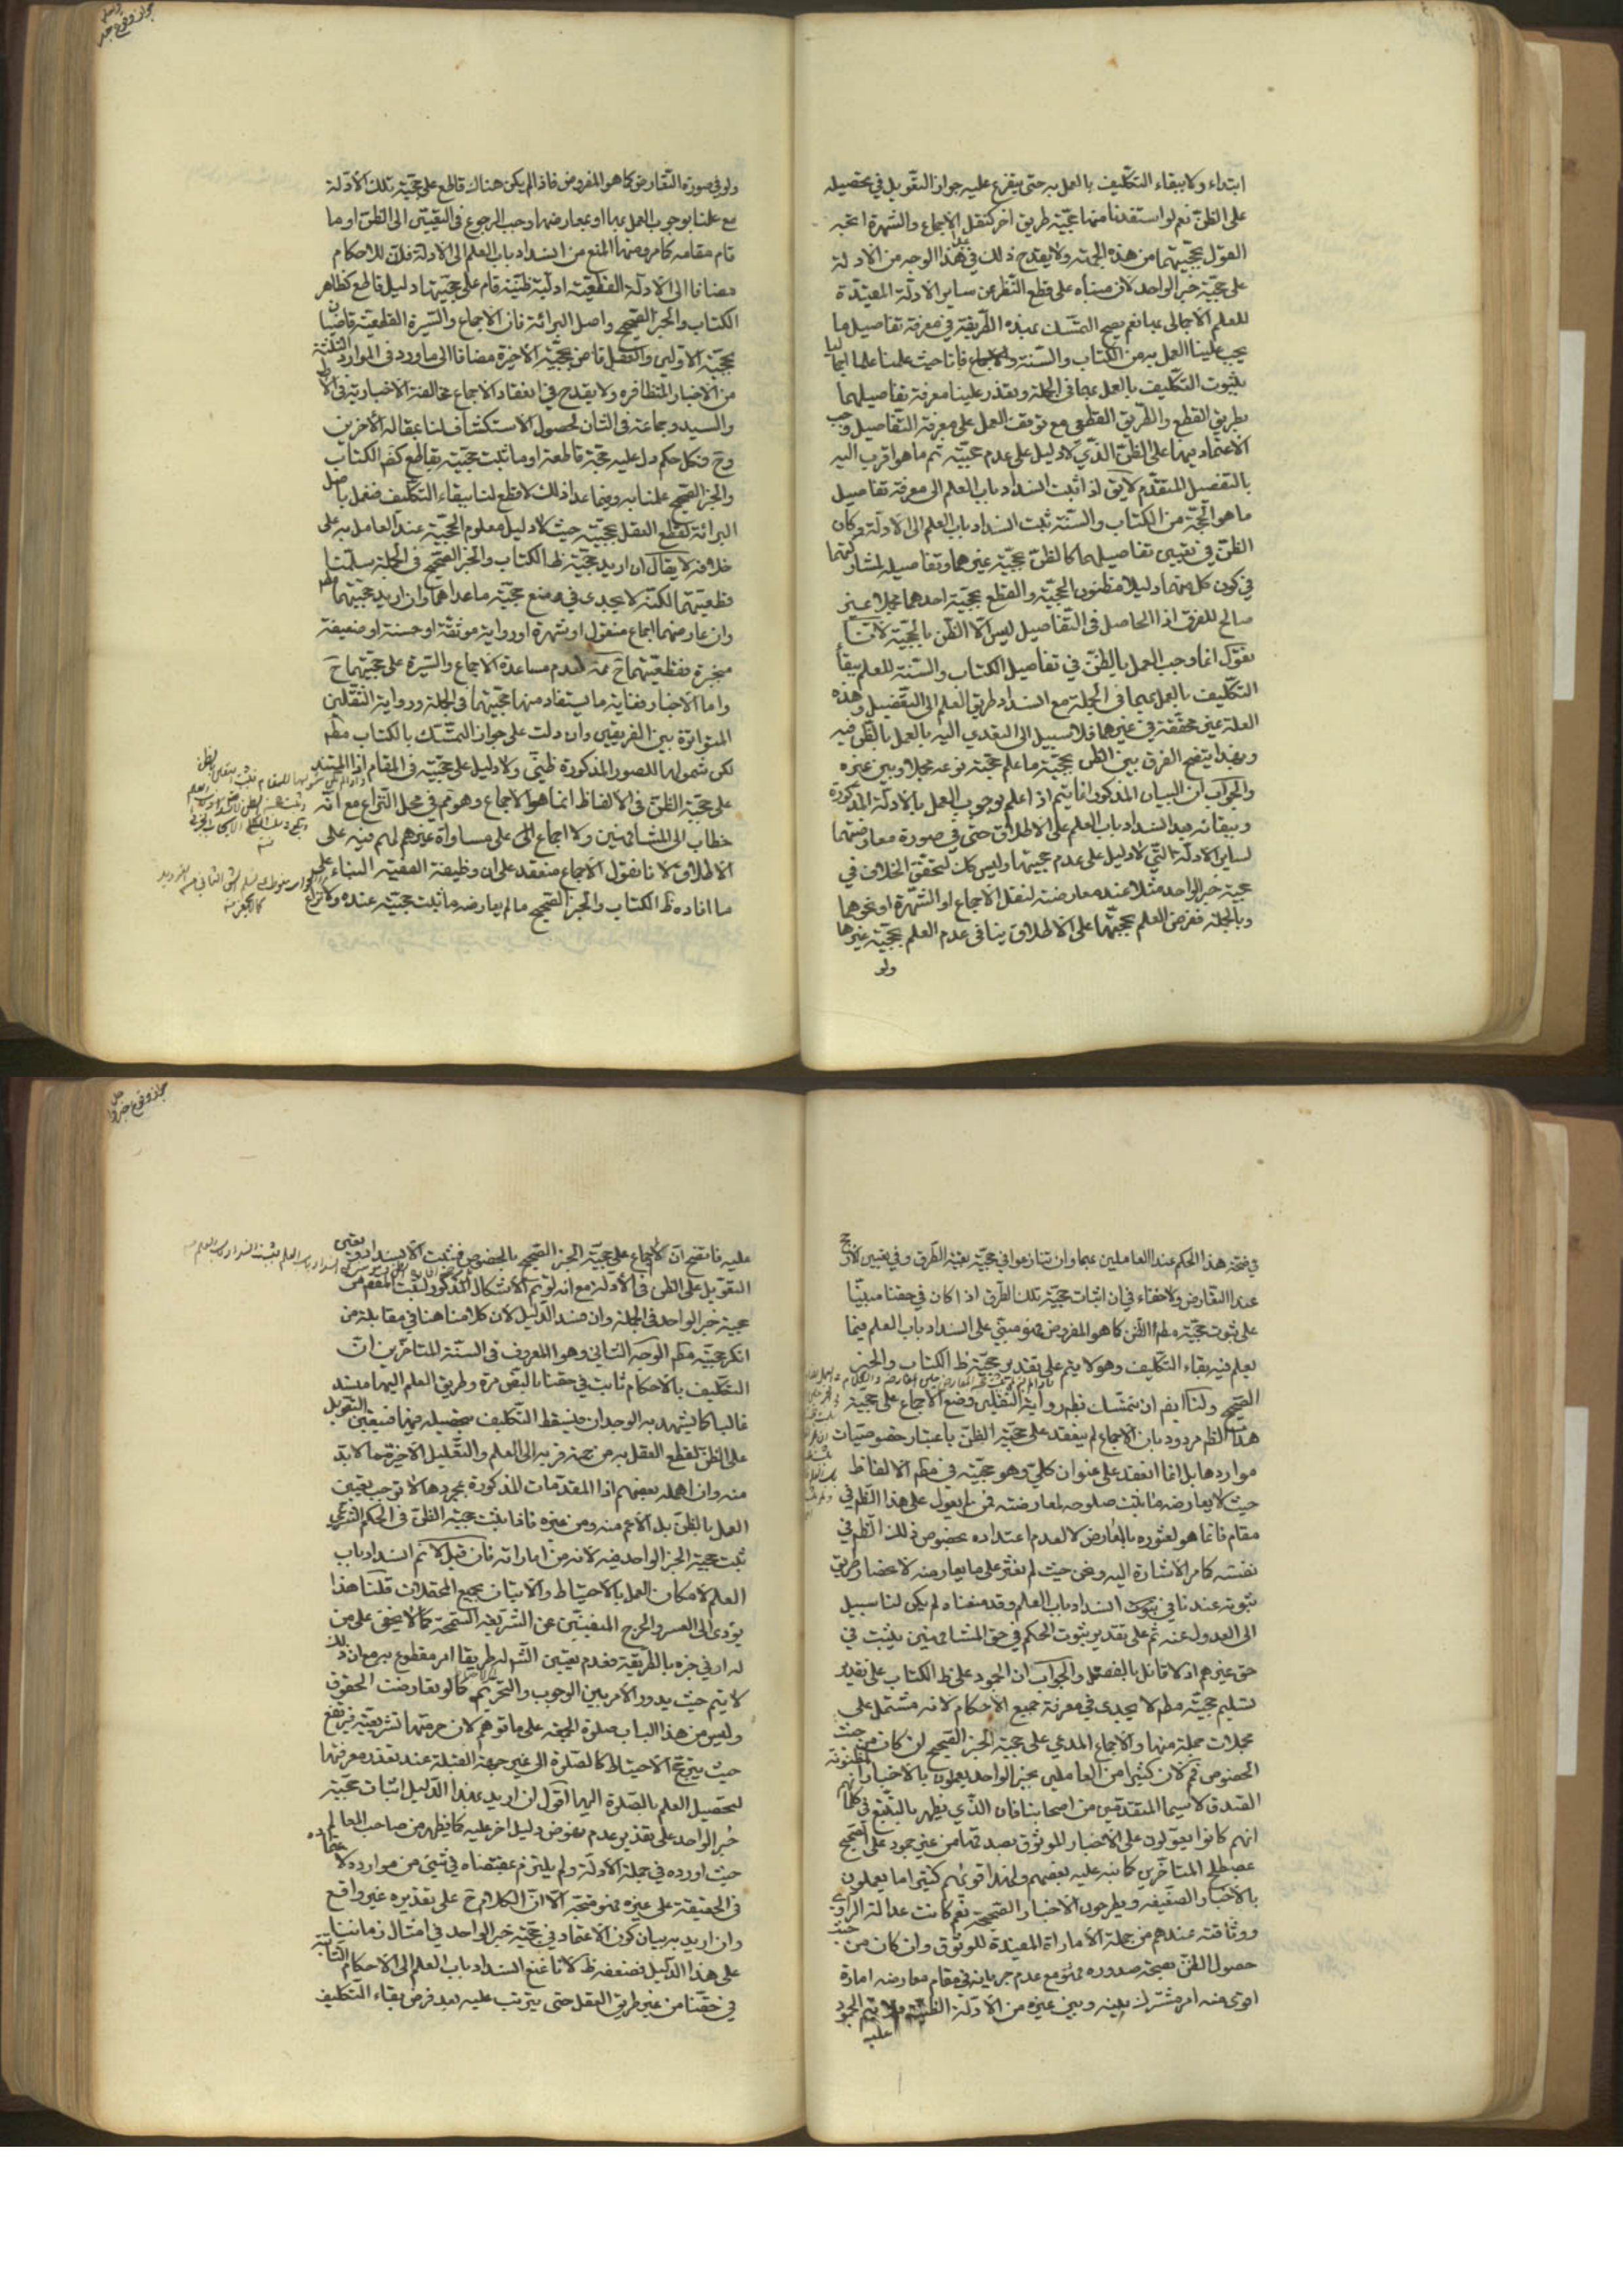 ابتداء ولا ببقاء التكليف بالعمل به حتى يتفرع عليه جواز التعويل في تحصيله
على الظن نعم لو استفدنا منها حجية طريق آخر كنقل الاجماع والشهرة اتجه
القول بحجيتهما من هذه الجهة ولا يقدح ذلك في عد هذا الوجه من الادلة
على حجية خبر الواحد لان مبناه على قطع النظر عن ساير الادلة المفيدة
للعلم الاجمالي بها نعم يصح التمسك بهذه الطريقة في معرفة تفاصيل ما
يجب علينا العمل به من الكتاب والسنة فانا حيث علمنا علما اجماليا
بثبوت التكليف بالعمل بهما في الجملة وتعذر علينا معرفة تفاصيلهما
بطريق القطع والطريق القطعي مع توقف العمل على معرفة التفاصيل وجب
الاعتماد فيها على الظن الذي لا دليل على عدم حجيته ثم ما هو اقرب اليه
بالتفصيل المتقدم لا يق اذا ثبت انسداد باب العلم الى معرفة تفاصيل
ما هو الحجة من الكتاب والسنة ثبت انسداد باب العلم الى الادلة وكان
الظن في تعيين تفاصيلهما كالظن بحجية غيرهما وتفاصيله لمشاركتهما
في كون كل منهما دليلا مظنون الحجية والقطع بحجية احدهما مجملا غير
صالح للفرق اذا الحاصل في التفاصيل ليس الا الظن بالحجية لانا
نقول انما وجب العمل بالظن في تفاصيل الكتاب والسنة للعلم ببقاء
التكليف بالعمل بهما في الجملة مع انسداد طريق العلم الى التفصيل وهذه
العلة غير محققة في غيرهما فلا سبيل الى التعدي اليه بالعمل بالظن فيه
وبهذا يتضح الفرق بين الظن بحجية ما علم حجية نوعه مجملا وبين غيره
والجواب ان البيان المذكور انما يتم اذا علم بوجوب العمل بالادلة المذكورة
وببقائه بعد انسداد باب العلم على الاطلاق حتى في صورة معارضتها
لساير الادلة التي لا دليل على عدم حجيتها وليس كك لتحقق الخلاف في
حجية خبر الواحد مثلا عند معارضته لنقل الاجماع او الشهرة او نحوهما
وبالجملة ففرض العلم بحجيتها على الاطلاق ينافي عدم العلم بحجية غيرها
ولو
ولو في صورة التعارض كما هو المفروض فاذا لم يكن هناك قاطع على حجية تلك الادلة
مع علمنا بوجوب العمل بها او بمعارضها وجب الرجوع في التعيين الى الظن او ما
قام مقامه كما مر ومنها المنع من انسداد باب العلم الى الادلة فلان للاحكام
مضافا الى الادلة القطعية ادلة ظنية قام على حجيتها دليل قاطع كظاهر
الكتاب والخبر الصحيح واصل البرائة فان الاجماع والسيرة القطعية قاضيان
بحجية الاولين والعقل قاض بحجية الاخيرة مضافا الى ما ورد في الموارد الثلثة
من الاخبار المتظافرة ولا يقدح في انعقاد الاجماع مخالفة الاخبارية في الاول
والسيد وجماعة في الثاني لحصول الاستكشاف لنا بمقالة الآخرين
وح فكل حكم دل عليه حجة قاطعة او ما ثبت حجيته بقاطع كنص الكتاب
والخبر الصحيح علمنا به وفيما عدا ذلك لا قطع لنا ببقاء التكليف فنعمل باصل
البرائة لقطع العقل بحجيته حيث لا دليل معلوم الحجية عند العامل به على
خلافه لا يقال ان اريد حجية ظ الكتاب والخبر الصحيح في الجملة سلمنا
قطعيتهما لكنه لا يجدي في منع حجية ما عداهما وان اريد حجيتهما مطم
وان عارضهما اجماع منقول او شهرة او رواية موثقة او حسنة او ضعيفة
منجبرة فقطعيتهما ح ممنوعة لعدم مساعدة الاجماع والسيرة على حجيتهما ح
واما الاخبار فغاية ما يستفاد منها حجيتهما في الجملة ورواية الثقلين
المتواترة بين الفريقين وان دلت على جواز التمسك بالكتاب مطم
لكن شمولها للصور المذكورة ظني ولا دليل على حجيته في المقام اذ المستند
على حجية الظن في الالفاظ انما هو الاجماع وهو تم في محل النزاع مع انه
خطاب الى المشافهين ولا اجماع على مساواة غيرهم لهم فيه على
الاطلاق لانا نقول الاجماع منعقد على ان وظيفة الفقيه البناء على
ما افاده ظ الكتاب والخبر الصحيح ما لم يعارضه ما ثبت حجيته عنده ولا نزاع
في صحة هذا الحكم عند العاملين بهما وان تنازعوا في حجية بقية الطرق وفي تعيين الارجح
عند التعارض ولا خفاء في ان اثبات حجية تلك الطرق اذا كان في حقنا مبنيا
على ثبوت حجية مطم الظن كما هو المفروض فهو مبني على انسداد باب العلم فيما
يعلم فيه بقاء التكليف وهو لا يتم على تقدير حجية ظ الكتاب والخبر
الصحيح ولنا ايضا ان نتمسك بظهر رواية الثقلين ومنع الاجماع على حجية
هذا الظم مردود بان الاجماع لم ينعقد على حجية الظن باعتبار خصوصيات
مواردها بل انما انعقد على عنوان كلي وهو حجيته في مطم الالفاظ
حيث لا يعارضه ما ثبت صلوحه لمعارضته فمن لم يعول على هذا الظم في
مقام فانما هو لعثوره بالمعارض لا لعدم اعتداده بخصوص ذلك الظم في
نفسه كما مر الاشارة اليه ونحن حيث لم نعثر على ما يعارضه لانحصار طريق
ثبوته عندنا في ثبوت انسداد باب العلم وقد منعناه لم يكن لنا سبيل
الى العدول عنه ثم على تقدير ثبوت الحكم في حق المشافهين يثبت في
حق غيرهم اذ لا قائل بالفصل والجواب ان الجمود على ظ الكتاب على تقدير
تسليم حجيته مطم لا يجدي في معرفة جميع الاحكام لانه مشتمل على
مجملات جملة منها والاجماع المدعى على حجية الخبر الصحيح ان كان من حيث
الخصوص فم لان كثيرا من العاملين بخبر الواحد يعملون بالاخبار المظنونة
الصدق لا سيما المتقدمين من اصحابنا فان الذي يظهر بالتتبع في كلماتهم
انهم كانوا يعولون على الاخبار الموثوق بصدقها من غير جمود على الصحيح
بمصطلح المتاخرين كما نبه عليه بعضهم ولهذا تريهم كثيرا ما يعملون
بالاخبار الضعيفة ويطرحون الاخبار الصحيحة نعم كانت عدالة الراوي
ووثاقته عندهم من جملة الامارات المفيدة للوثوق وان كان من حيث
حصول الظن بصحة صدوره فهو مع عدم جريانه في مقام معارضة امارة
اقوى منه امر مشترك بينه وبين غيره من الادلة الظنية فلا يتم الجمود
عليه
عليه فاتضح ان لا اجماع على حجية الخبر الصحيح بالخصوص فثبت الانسداد وتعين
التعويل على الظن في الادلة مع انه لو تم الاشكال المذكور لثبت المقصود من
حجية خبر الواحد في الجملة وان فسد الدليل لان كلامنا هنا في مقابلة من
انكر حجيته مطم الوجه الثاني وهو المعروف في السنة المتاخرين ان
التكليف بالاحكام ثابت في حقنا بالضرورة وطريق العلم اليها منسد
غالبا كما يشهد به الوجدان فيسقط التكليف بتحصيله فيها فيتعين التعويل
على الظن لقطع العقل به من جهة قربه الى العلم والتعليل الاخير مما لابد
منه وان اهمله بعضهم اذ المقدمات المذكورة بمجردها لا توجب تعيين
العمل بالظن بل الاعم منه ومن غيره فاذا ثبت حجية الظن في الحكم الشرعي
ثبت حجية الخبر الواحد فيه لانه من اماراته فان قيل لا نم انسداد باب
العلم لامكان العمل بالاحتياط والاتيان بجميع المحتملات قلنا هذا
يؤدي الى العسر والحرج المنفيين عن الشريعة السمحة كما لا يخفى على من
له ادنى خبرة بالطريقة فعدم تعيين الش له طريقا امر مقطوع به مع ان ذلك
لا يتم حيث يدور الامر بين الوجوب والتحريم كما لو تعارضت الحقوق
وليس من هذا الباب صلوة الجمعة على ما توهم لان حرمتها تشريعية فيرتفع
حيث يترجح الاحتياط كالصلوة الى غير جهة القبلة عند تعذر معرفتها
لتحصيل العلم بالصلوة اليها اقول ان اريد بهذا الدليل اثبات حجية
خبر الواحد على تقدير عدم نهوض دليل اخر عليه كما يظهر من صاحب المعالم
حيث اورده في جملة الادلة ولم يلتزم بمقتضاه في شيء من موارده لاعتماده
في الحقيقة على غيره فهو متجه الا ان الكلام ح على تقديره غير واقع
وان اريد به بيان كون الاعتماد في حجية خبر الواحد في امثال زماننا
على هذا الدليل فضعفه ظ لانا نمنع انسداد باب العلم الى الاحكام الثابتة
في حقنا من غير طريق العقل حتى يترتب عليه بعد فرض بقاء التكليف